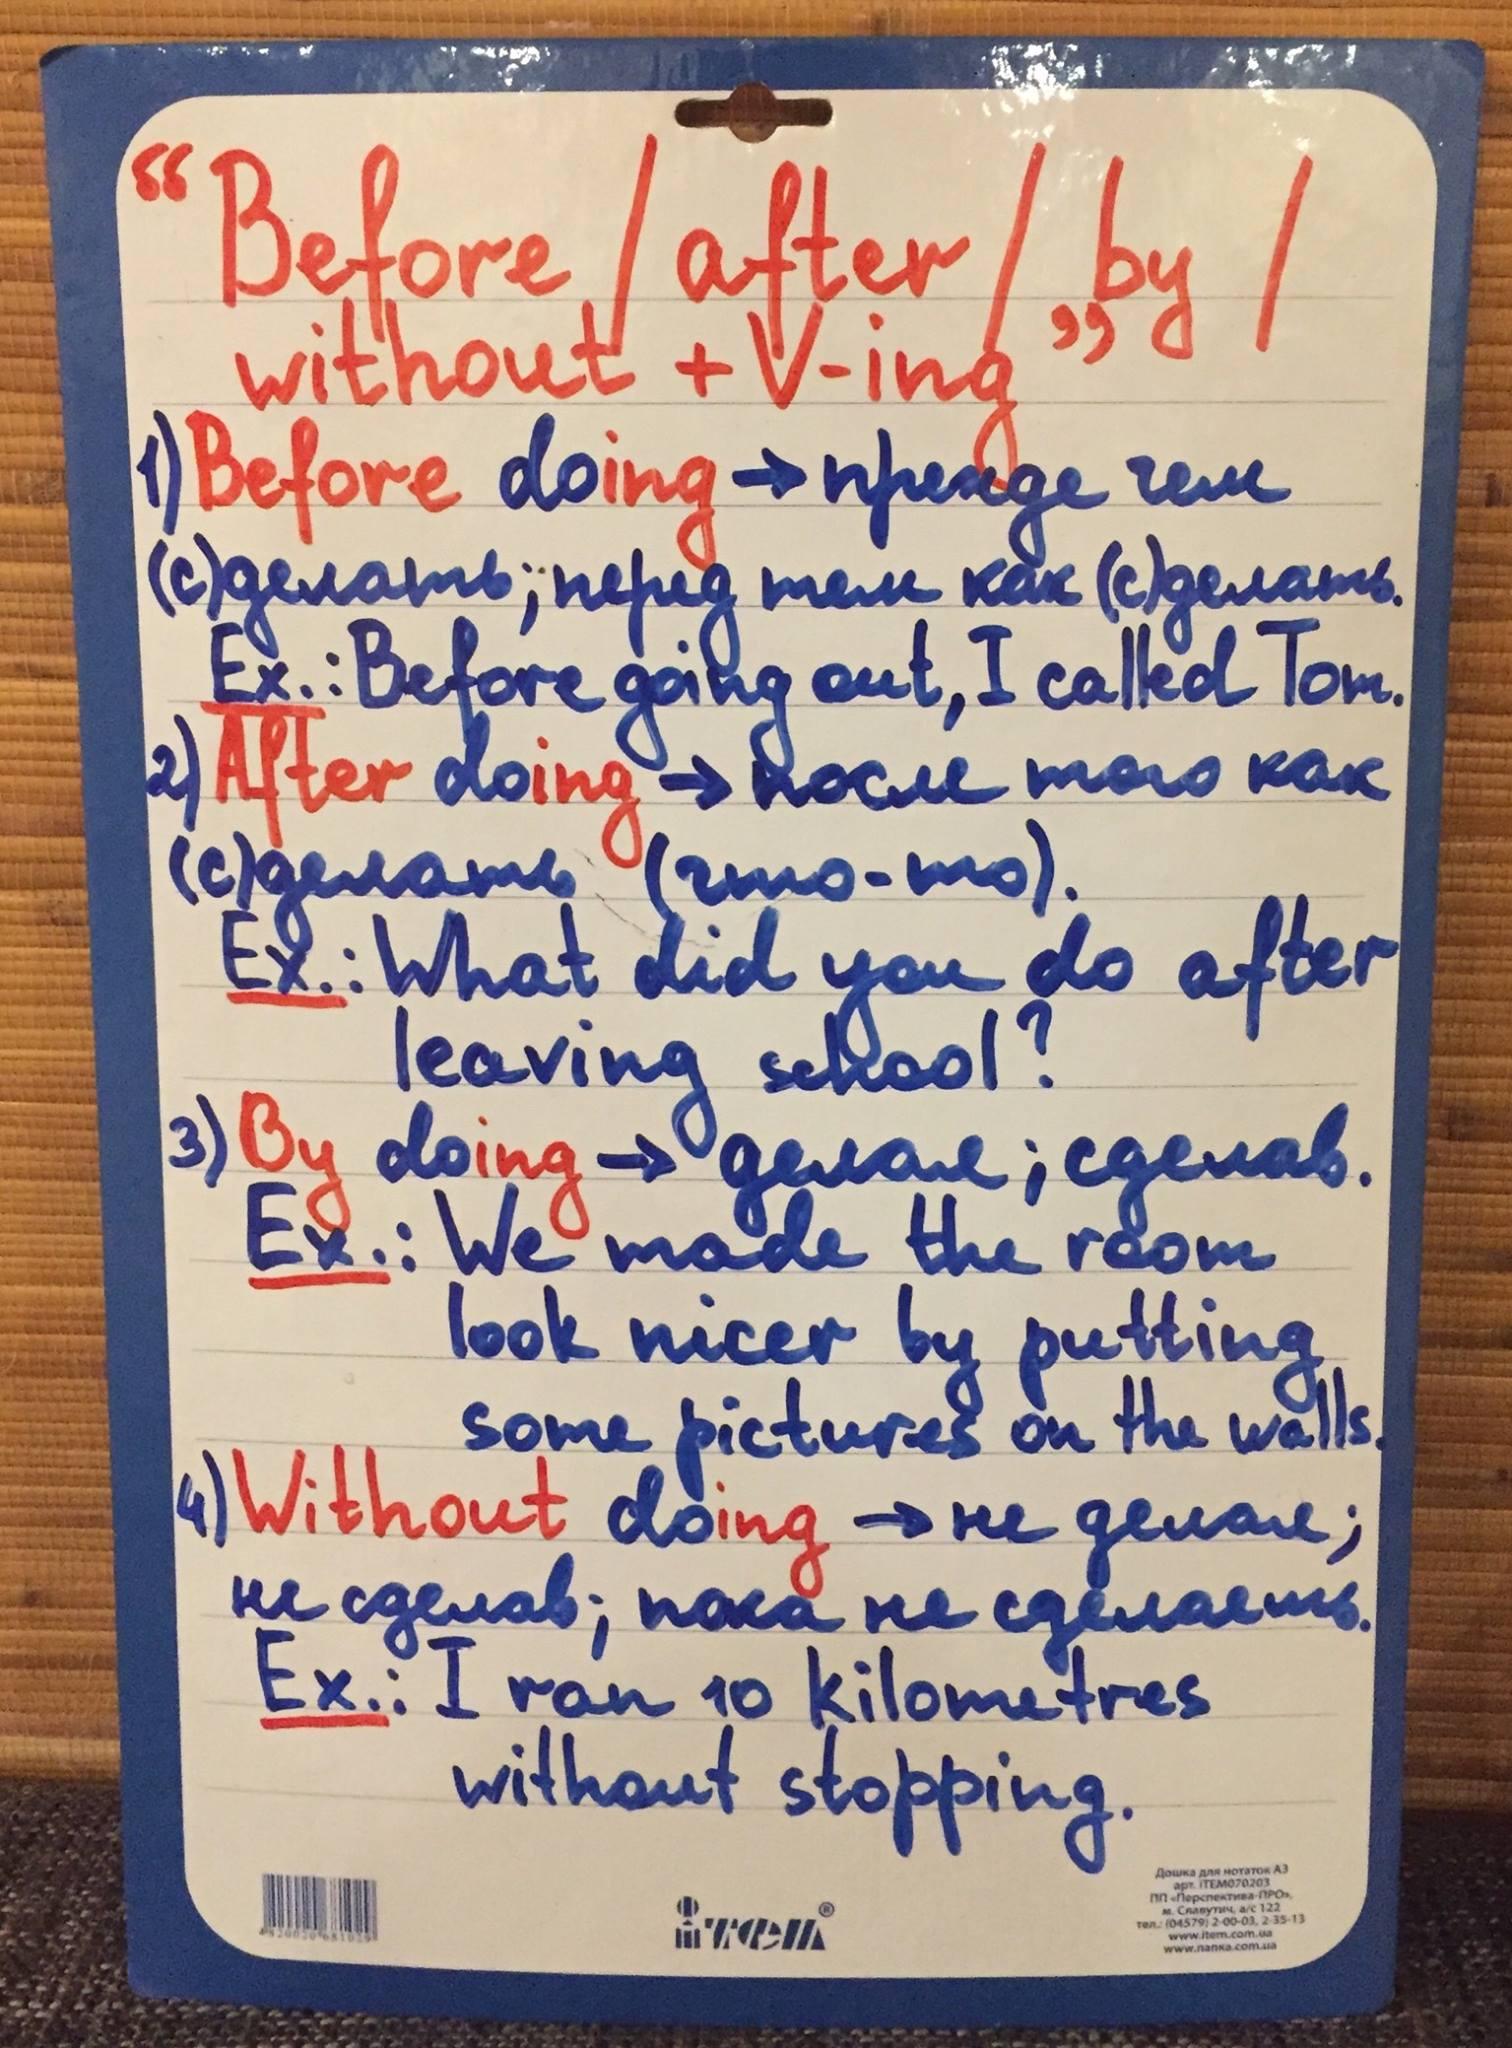 “Before / after / by /
without + V-ing”
1) Before doing → прежде чем
(с)делать; перед тем как (с)делать.
Ex.: Before going out, I called Tom.
2) After doing → после того как
(с)делать (что-то).
Ex.: What did you do after
leaving school?
3) By doing → делая; сделав.
Ex.: We made the room
look nicer by putting
some pictures on the walls.
4) Without doing → не делая;
не сделав; пока не сделаешь.
Ex.: I ran 10 kilometres
without stopping.
iтем®
Дошка для нотаток А3
арт. iTEM070203
ПП «Перспектива-ПРО»,
м. Славутич, а/с 122
тел.: (04579) 2-00-03, 2-35-13
www.item.com.ua
www.папка.com.ua